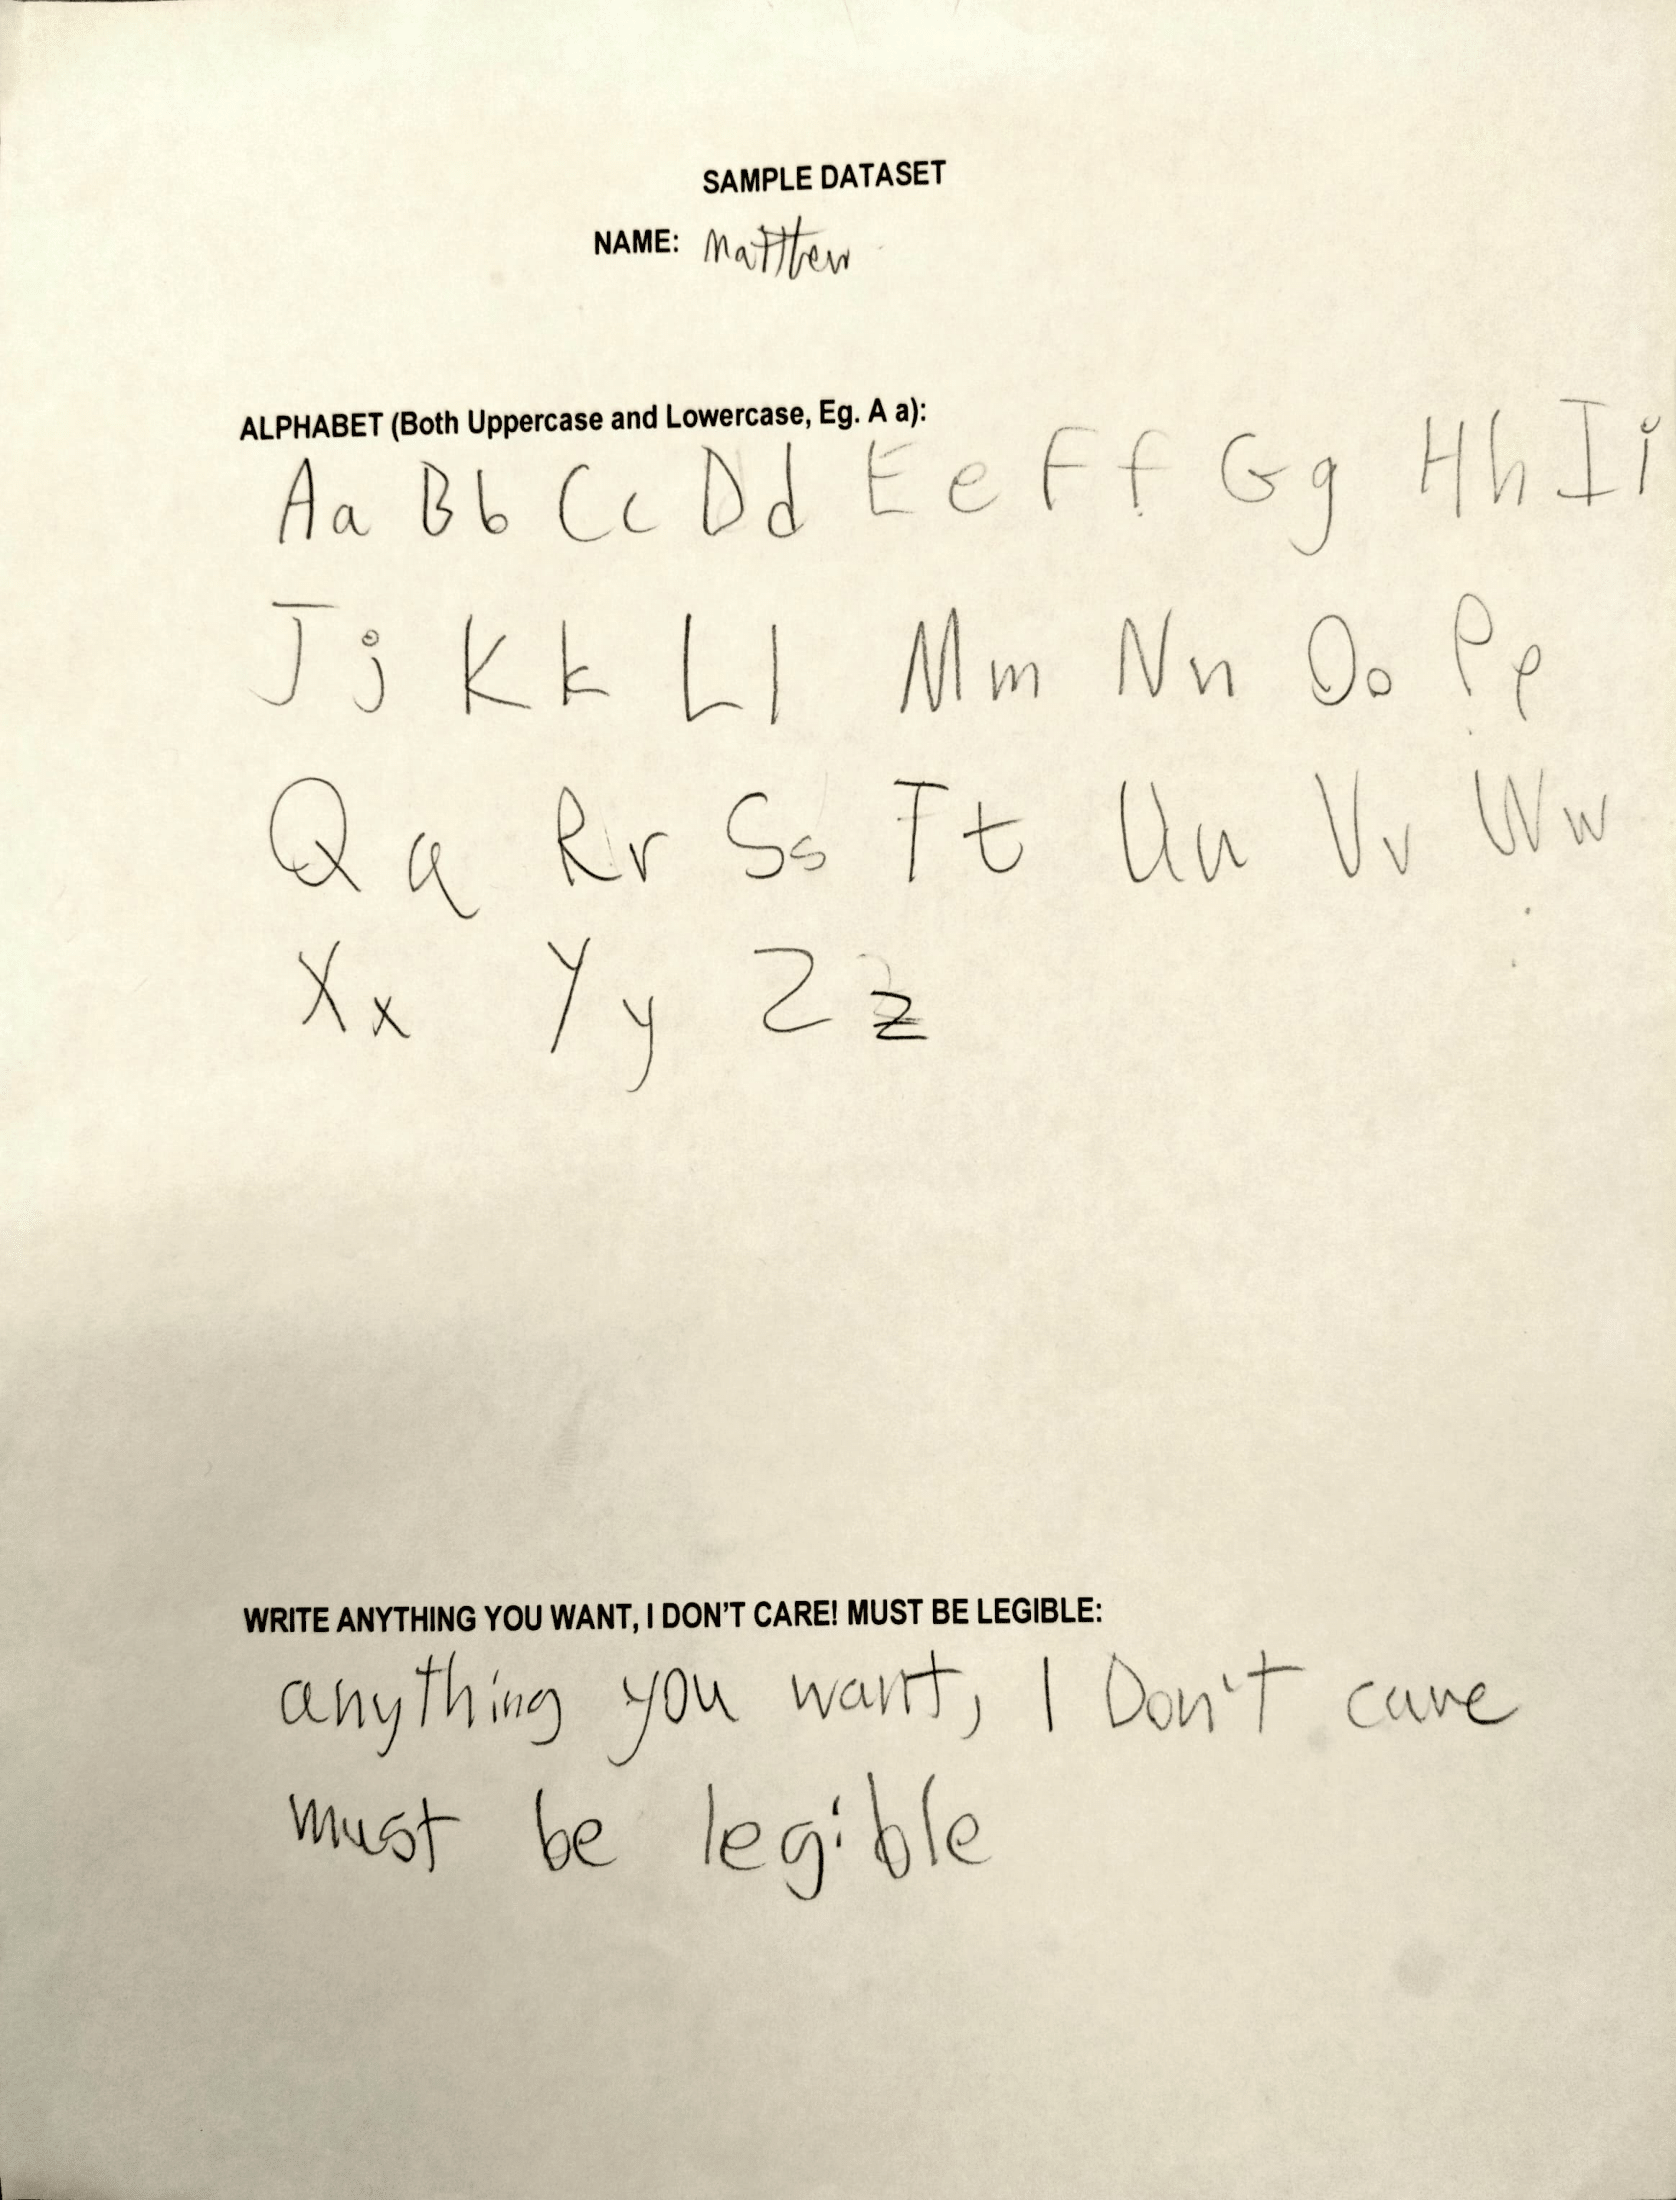 SAMPLE DATASET
NAME: Matthew
ALPHABET (Both Uppercase and Lowercase, Eg. A a):
Aa Bb Cc Dd Ee Ff Gg Hh Ii
Jj Kk Ll Mm Nn Oo Pp
Qq Rr Ss Tt Uu Vv Ww
Xx Yy Zz
WRITE ANYTHING YOU WANT, I DON'T CARE! MUST BE LEGIBLE:
anything you want, I Don't care
must be legible